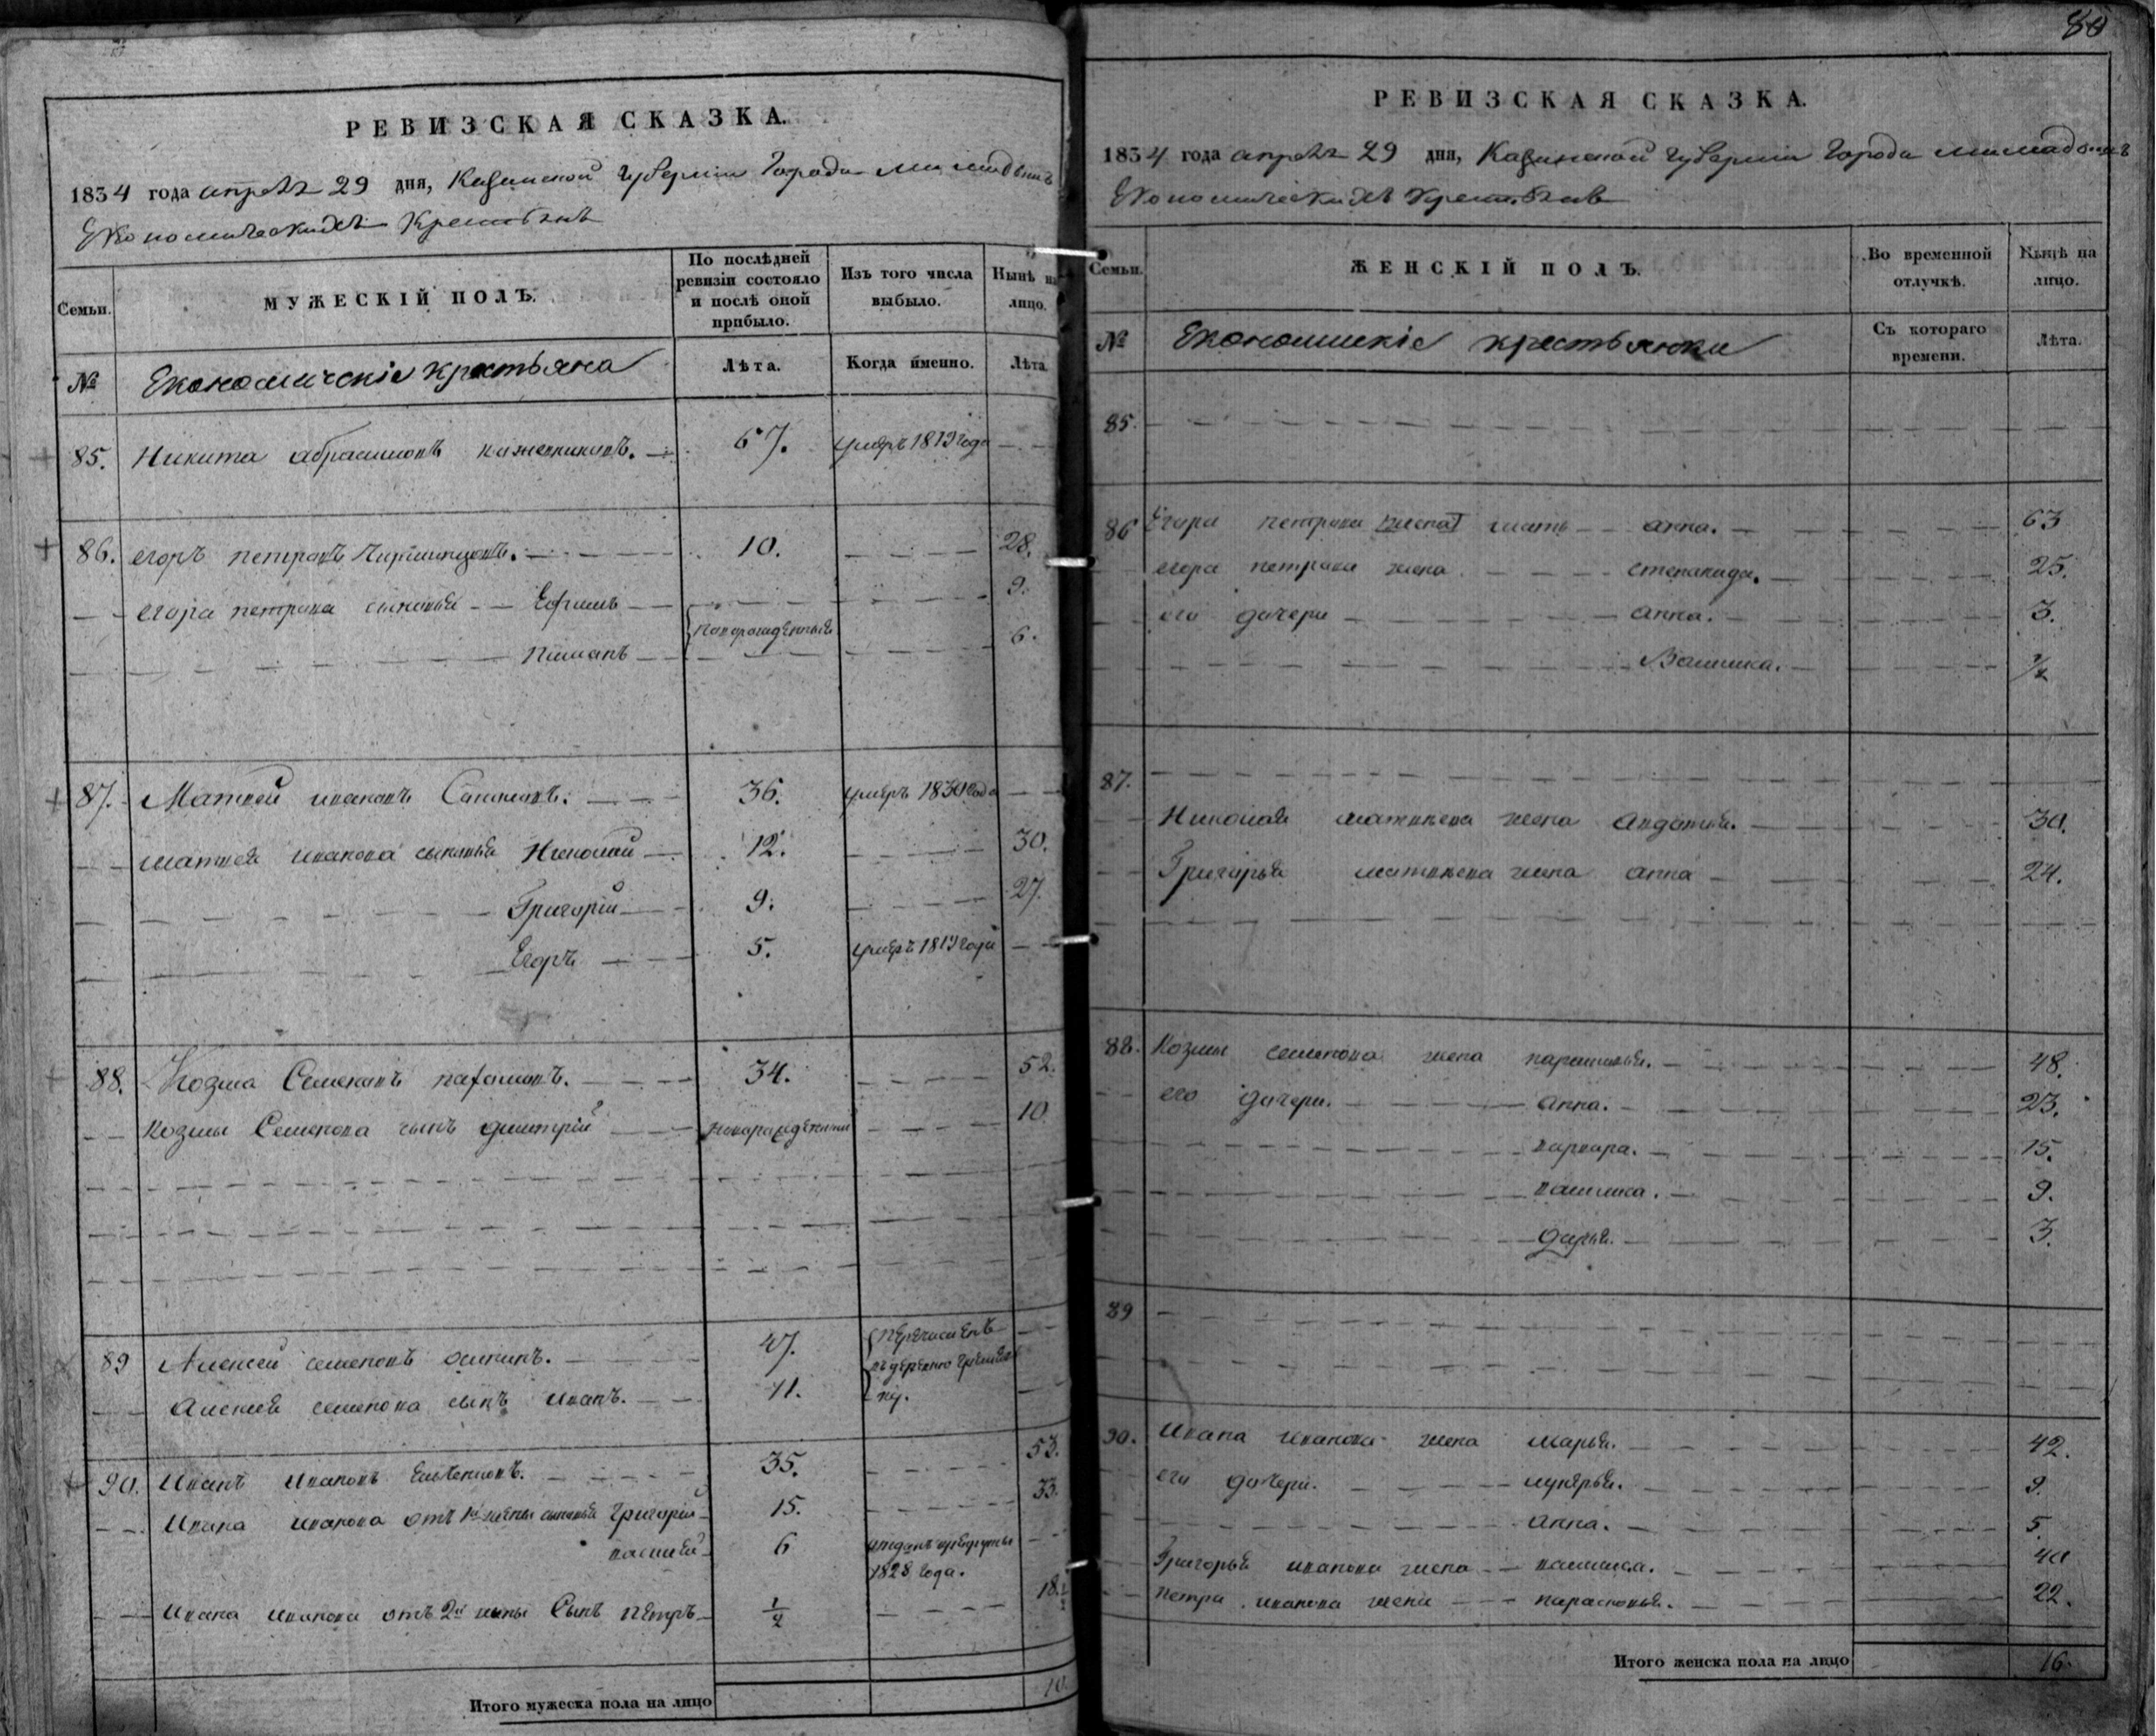 РЕВИЗСКАЯ СКАЗКА.
1834 года апреля 29 дня, Казанской губернии Города
Економическихъ Крестьянъ
Семьи.
МУЖЕСКІЙ ПОЛЪ.
По послѣдней ревизіи состояло и послѣ оной прибыло.
Изъ того числа выбыло.
Нынѣ на лицо.
№
Економическіе крестьяна
Лѣта.
Когда именно.
Лѣта.
85. Никита абрамовъ кажевниковъ. 67. умеръ 1819 года
86. егоръ петровъ 10. 28.
егора петрова сыновья Ефимъ 9.
новорожденныя
6.
87. Матвей ивановъ 36. умеръ 1830 года
матвея иванова сыновья Николай 12. 30.
Григорій 9. 27.
Егоръ 5. умеръ 1819 года
88. Козма Семеновъ 34. 52.
Козмы Семенова сынъ дмитрій новорожденный 10
89 Алексей семеновъ осипинъ. 47. перечисленъ
Алексея семенова сынъ иванъ. 11.
90. Иванъ ивановъ 35. 53.
Ивана иванова отъ 1й жены сыновья григорій 15. 33.
василей 6 отданъ врекруты
1828 года.
Ивана иванова отъ 2й жены Сынъ петръ 1/2 18 1/2
Итого мужеска пола на лицо 10.
80
РЕВИЗСКАЯ СКАЗКА.
1834 года апреля 29 дня, Казанской губернии Города
Економическихъ крестьянъ
Семьи.
ЖЕНСКІЙ ПОЛЪ.
Во временной отлучкѣ.
Нынѣ на лицо.
№
Економикіе крестьянки
Съ котораго времени.
Лѣта.
85.
86 Егора петрова мать анна. 63
егора петрова жена степанида. 25.
его дочери анна. 3.
1/2
87.
Николая матвеева жена авдотья. 30.
Григорья матвеева жена анна 24.
88. Козмы семенова жена парасковья. 48.
его дочери. анна. 23.
варвара. 15.
9.
дарья. 3.
89
90. Ивана иванова жена марья. 42.
его дочери. лукерья. 9.
анна. 5.
Григорья иванова жена 40
петра иванова жена парасковья. 22.
Итого женска пола на лицо 16.